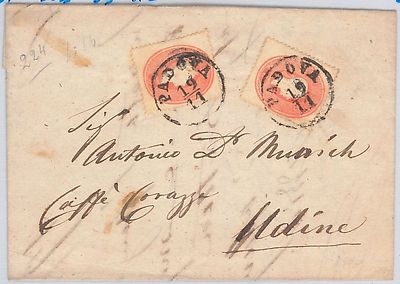 224
PADOVA
19
11
PADOVA
19
11
Sigr
Antonio Dr
Caffè Corazza
Udine